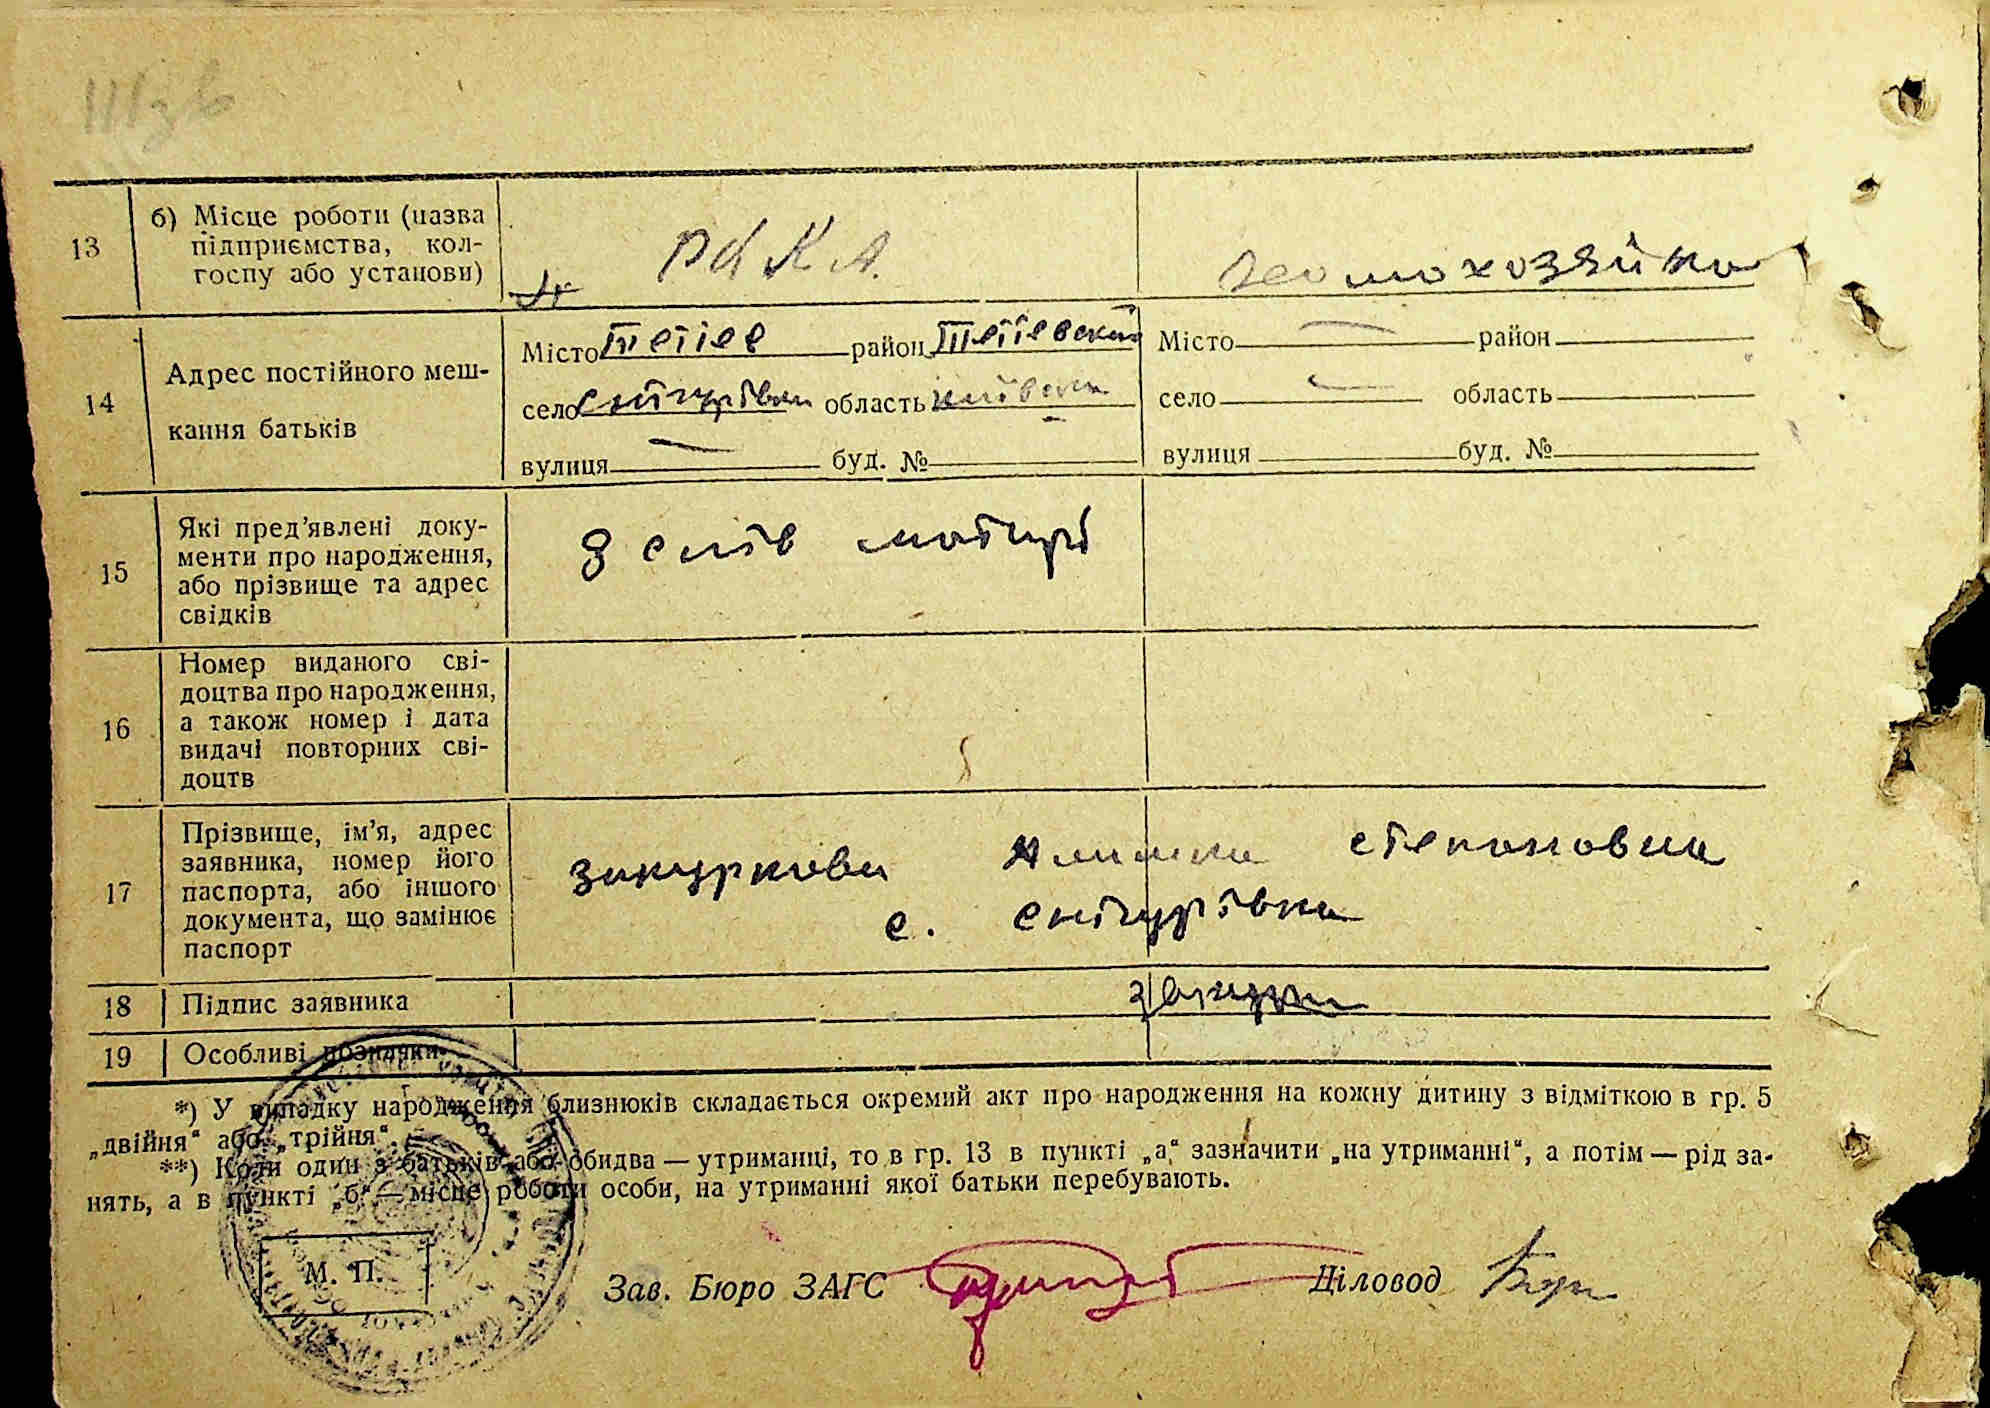 13
б) Місце роботи (назва
підприємства, кол-
госпу або установи)
РККА.
домохозяйка
14
Адрес постійного меш-
кання батьків
Місто Тетіев район Тетіевский
село Снігурівка область київська
вулиця — буд. №
Місто — район
село — область
вулиця буд. №
15
Які пред’явлені доку-
менти про народження,
або прізвище та адрес
свідків
З слів матирі
16
Номер виданого сві-
доцтва про народження,
а також номер і дата
видачі повторних сві-
доцтв
17
Прізвище, ім’я, адрес
заявника, номер його
паспорта, або іншого
документа, що замінює
паспорт
степановна
с. снігурівка
18
Підпис заявника
19
Особливі позначки
*) У випадку народження близнюків складається окремий акт про народження на кожну дитину з відміткою в гр. 5
„двійня“ або „трійня“.
**) Коли один з батьків або обидва — утриманці, то в гр. 13 в пункті „а“ зазначити „на утриманні“, а потім — рід за-
нять, а в пункті „б“ — місце роботи особи, на утриманні якої батьки перебувають.
М. П.
Зав. Бюро ЗАГС
Діловод